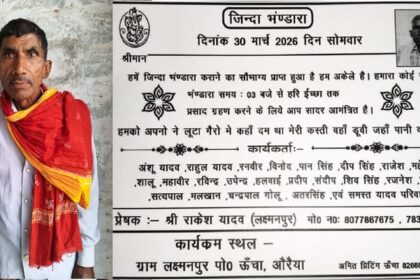 जिन्दा भण्डारा
दिनांक 30 मार्च 2026 दिन सोमवार
श्रीमान
हमें जिन्दा भण्डारा कराने का सौभाग्य प्राप्त हुआ है हम अकेले है। हमारा कोई
भण्डारा समय : 03 बजे से हरि ईच्छा तक
प्रसाद ग्रहण करने के लिए आप सादर आमंत्रित है।
हमको अपनो ने लूटा गैरो मे कहाँ दम था मेरी कस्ती वहाँ डूबी जहाँ पानी
कार्यकर्ता:-
अंशू यादव, राहुल यादव, रनवीर, विनोद, पान सिंह, दीप सिंह, राजेश,
शालू, महावीर, रविन्द्र, उपेन्द्र, हलवाई, प्रदीप, संदीप, शिव सिंह, रजनेश,
सत्यपाल, मलखान, चन्द्रपाल गोलू, अतरसिंह, एवं समस्त यादव
प्रेषक:- श्री राकेश यादव (लक्ष्मनपुर) मो० नं०: 8077867675,
कार्यकम स्थल -
ग्राम लक्ष्मनपुर पो० ऊँचा, औरैया
अमित प्रिटिंग ऊँचा